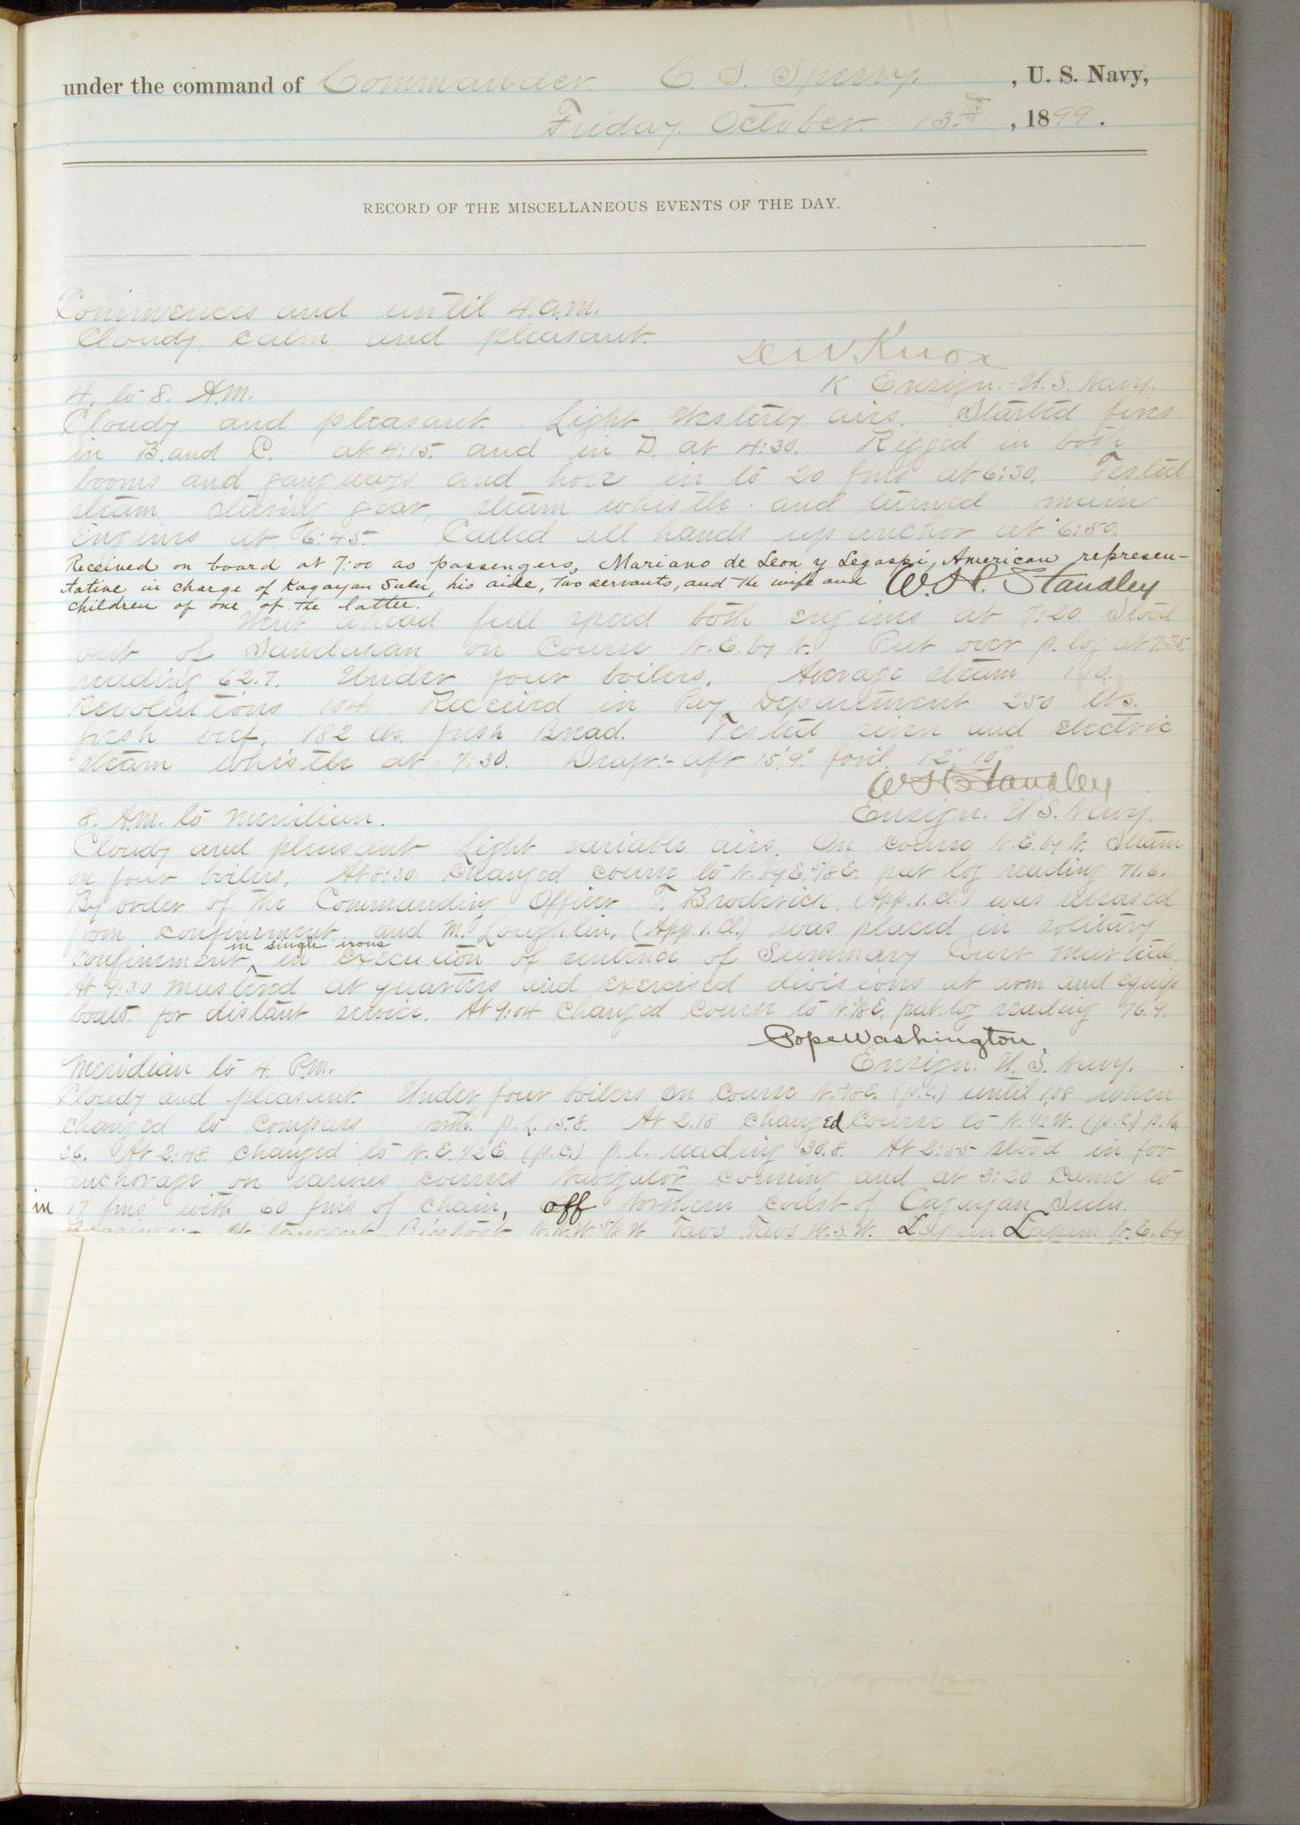 under the command of Commander C. S. Sperry, U. S. Navy,
Friday October 13th, 1899.
RECORD OF THE MISCELLANEOUS EVENTS OF THE DAY.
Commences and until 4 a.m.
Cloudy, calm and pleasant.
D W Knox
4. to 8. A.M.
Ensign. U.S. Navy.
Cloudy and pleasant. Light Westerly airs. Started fires
in B. and C. at 4:15. and in D. at 4:30. Rigged in both
booms and gangways and hove in to 20 fms at 6:30. Tested
steam steering gear, steam whistle and turned main
engines at 6:45. Called all hands up anchor at 6:50.
Received on board at 7:00 as passengers, Mariano de Leon y Legaspi, American represen-
tative in charge of Kagayan Sulu, his aide, two servants, and the wife and
children of one of the latter. W. H. Standley
Went ahead full speed both engines at 7:20. Stood
out of Sandakan on Course N.E. by N. Put over p. log at 7:35
reading 62.7. Under four boilers. Average steam
Revolutions 104. Received in Pay Department 250 lbs.
fresh beef, 182 lbs. fresh Bread. Tested siren and electric
steam whistle at 7:30. Draft:- aft 15' 9" for'd. 12' 10"
W H Standley
8. A.M. to Meridian. Ensign. U S. Navy.
Cloudy and pleasant. Light variable airs. On course N.E. by N. Steam
on four boilers. At 8:30 changed course to N. by E. 7/8 E. pat log reading 71.6.
By order of the Commanding Officer T. Broderick. (App. 1. Cl.) was released
from confinement and McLoughlin, (App. 1. Cl.) was placed in solitary
in single irons
confinement in execution of sentence of Summary Court Martial.
At 9:30 mustered at quarters and exercised divisions at arm and equip
boats for distant service. At 9:04 changed course to N. 7/8 E. pat. log reading 76.9.
Pope Washington.
Meridian to 4. P.M. Ensign. U. S. Navy.
Cloudy and pleasant. Under four boilers on course N. 7/8 E. (p.c.) until 1.08 when
changed to compass north. p. l. 15.8. At 2.18 changed course to N. 1/2 W. (p.c.) p. l.
26. At 2:48 changed to N.E. 1/2 E. (p.c.) p. l. reading 30.8. At 2:55 stood in for
anchorage on various courses navigator conning and at 3:20 came to
in 17 fms with 60 fms of chain, off Northern coast of Cagayan Sulu.
Bearings:- tangent W.S.W. Lapun Lapun N.E. by